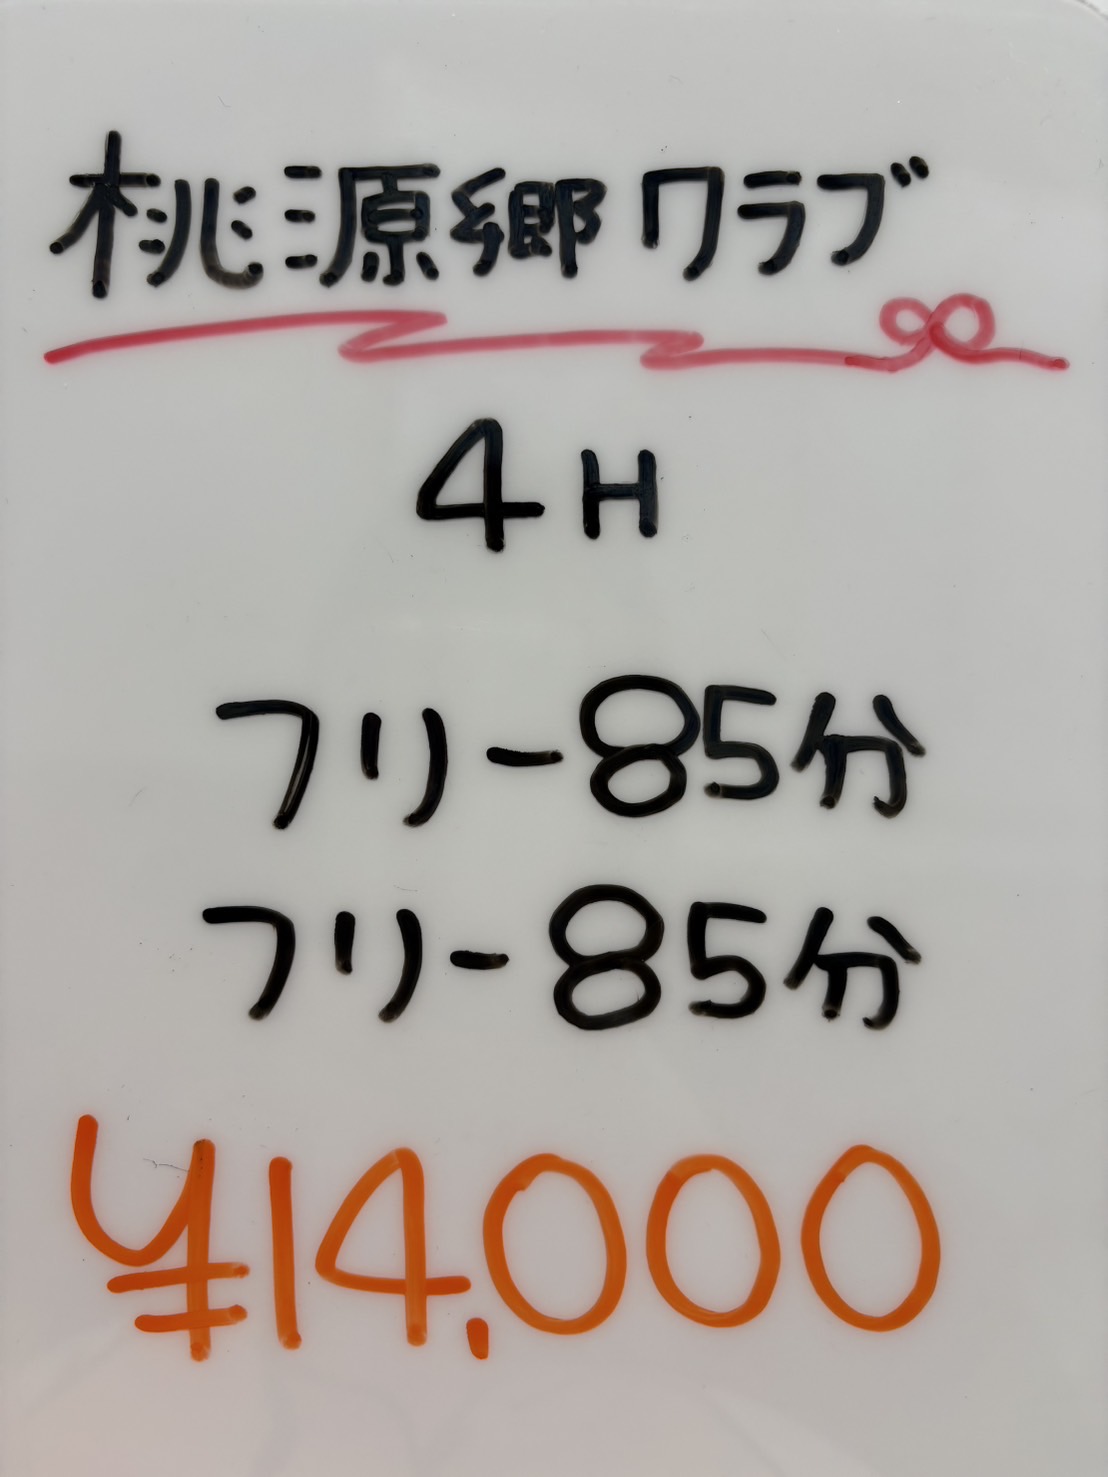 桃源郷クラブ
4H
フリー85分
フリー85分
¥14,000